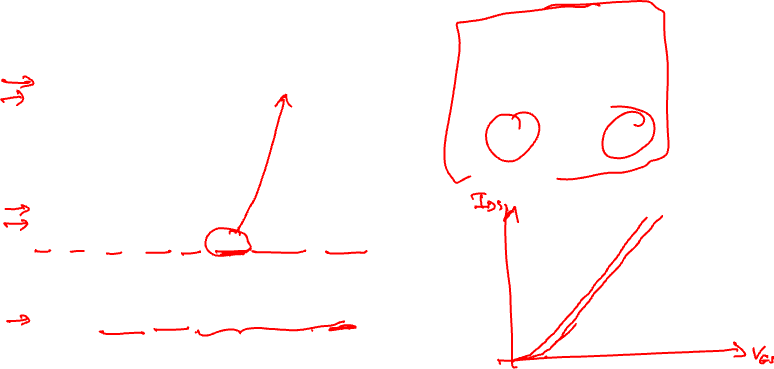 IDS
VGS